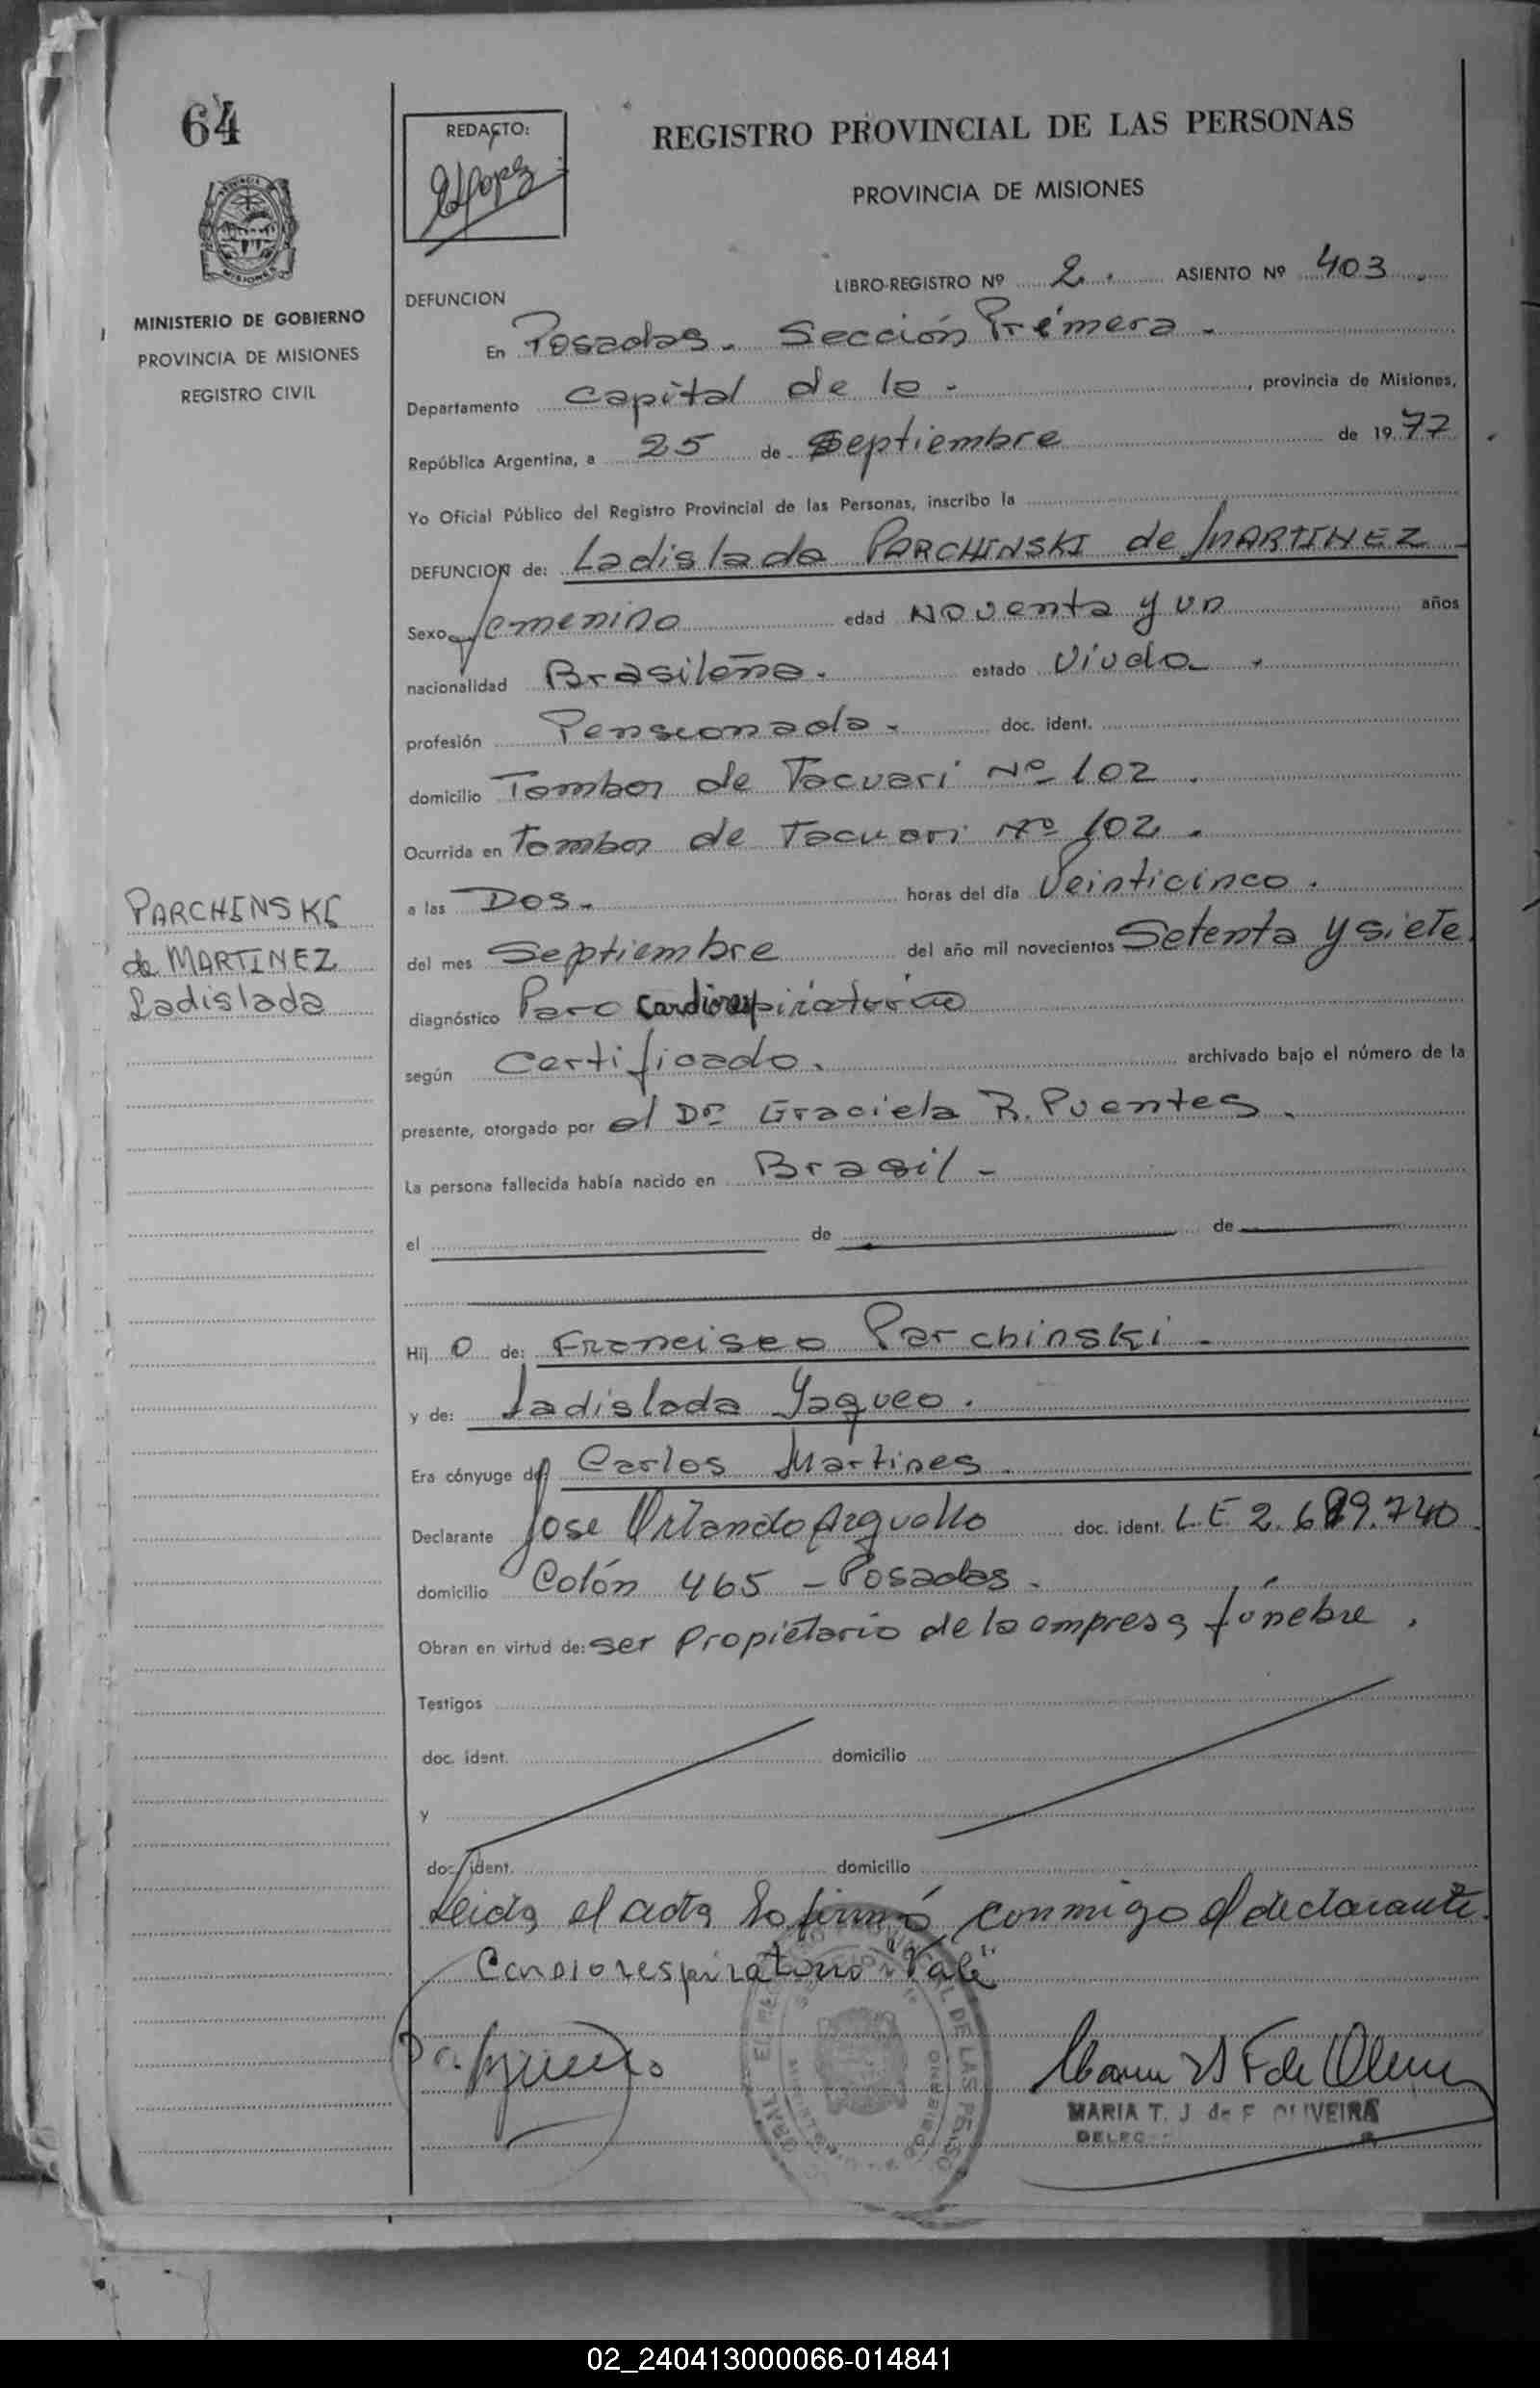 64
REDACTO:
REGISTRO PROVINCIAL DE LAS PERSONAS
PROVINCIA DE MISIONES
LIBRO-REGISTRO Nº 2. ASIENTO Nº 403.
MINISTERIO DE GOBIERNO
PROVINCIA DE MISIONES
REGISTRO CIVIL
DEFUNCION
En Posadas. Sección Primera.
Departamento Capital de la - , provincia de Misiones,
República Argentina, a 25 de Septiembre de 1977
Yo Oficial Público del Registro Provincial de las Personas, inscribo la
DEFUNCION de: Ladislada PARCHINSKI de MARTINEZ
Sexo femenino edad Noventa y un años
nacionalidad Brasileña. estado Viuda.
profesión Pensionada. doc. ident.
domicilio Tambor de Tacuari Nº 102.
Ocurrida en Tambor de Tacuari Nº 102.
a las Dos. horas del día Veinticinco.
PARCHINSKI
de MARTINEZ
Ladislada
del mes Septiembre del año mil novecientos Setenta y siete.
diagnóstico Paro Cardiorespiratorio
según Certificado. archivado bajo el número de la
presente, otorgado por el Dr Graciela R. Puentes.
La persona fallecida había nacido en Brasil -
el de de
Hij o de: Francisco Parchinski -
y de: Ladislada Yaqueo.
Era cónyuge de: Carlos Martines.
Declarante Jose Orlando Arguello doc. ident. L.E 2.689.740
domicilio Colón 465 - Posadas.
Obran en virtud de: ser propietario de la empresa fúnebre.
Testigos
doc. ident. domicilio
y
doc. ident. domicilio
Leida el acta la firmó conmigo el declarante.
Cardiorespiratorio "Vale"
MARIA T. J. de F. OLIVEIRA
02_240413000066-014841